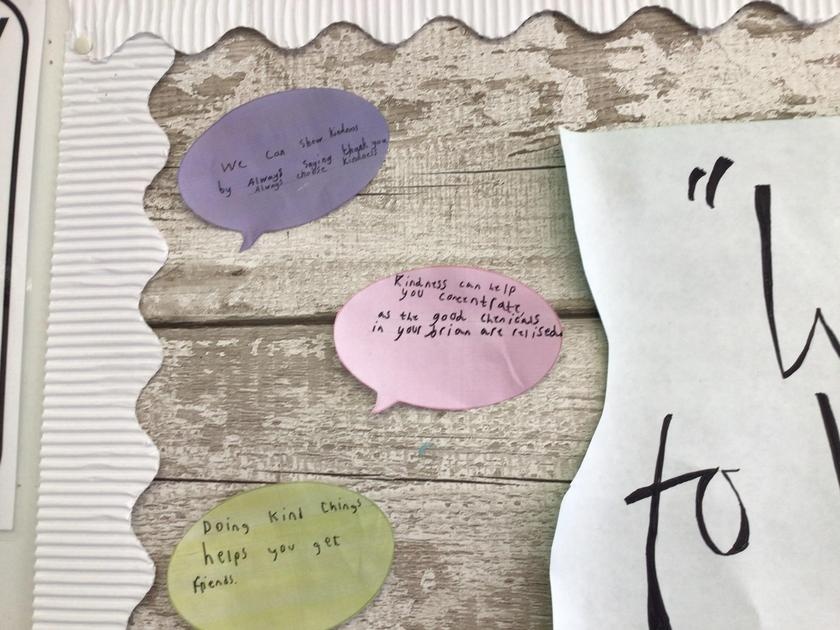 We can show kindness
by Always saying thank you
Always choose kindness
Kindness can help
you concentrate
as the good chemicals
in your brian are relised
Doing kind things
helps you get
friends.
"
to